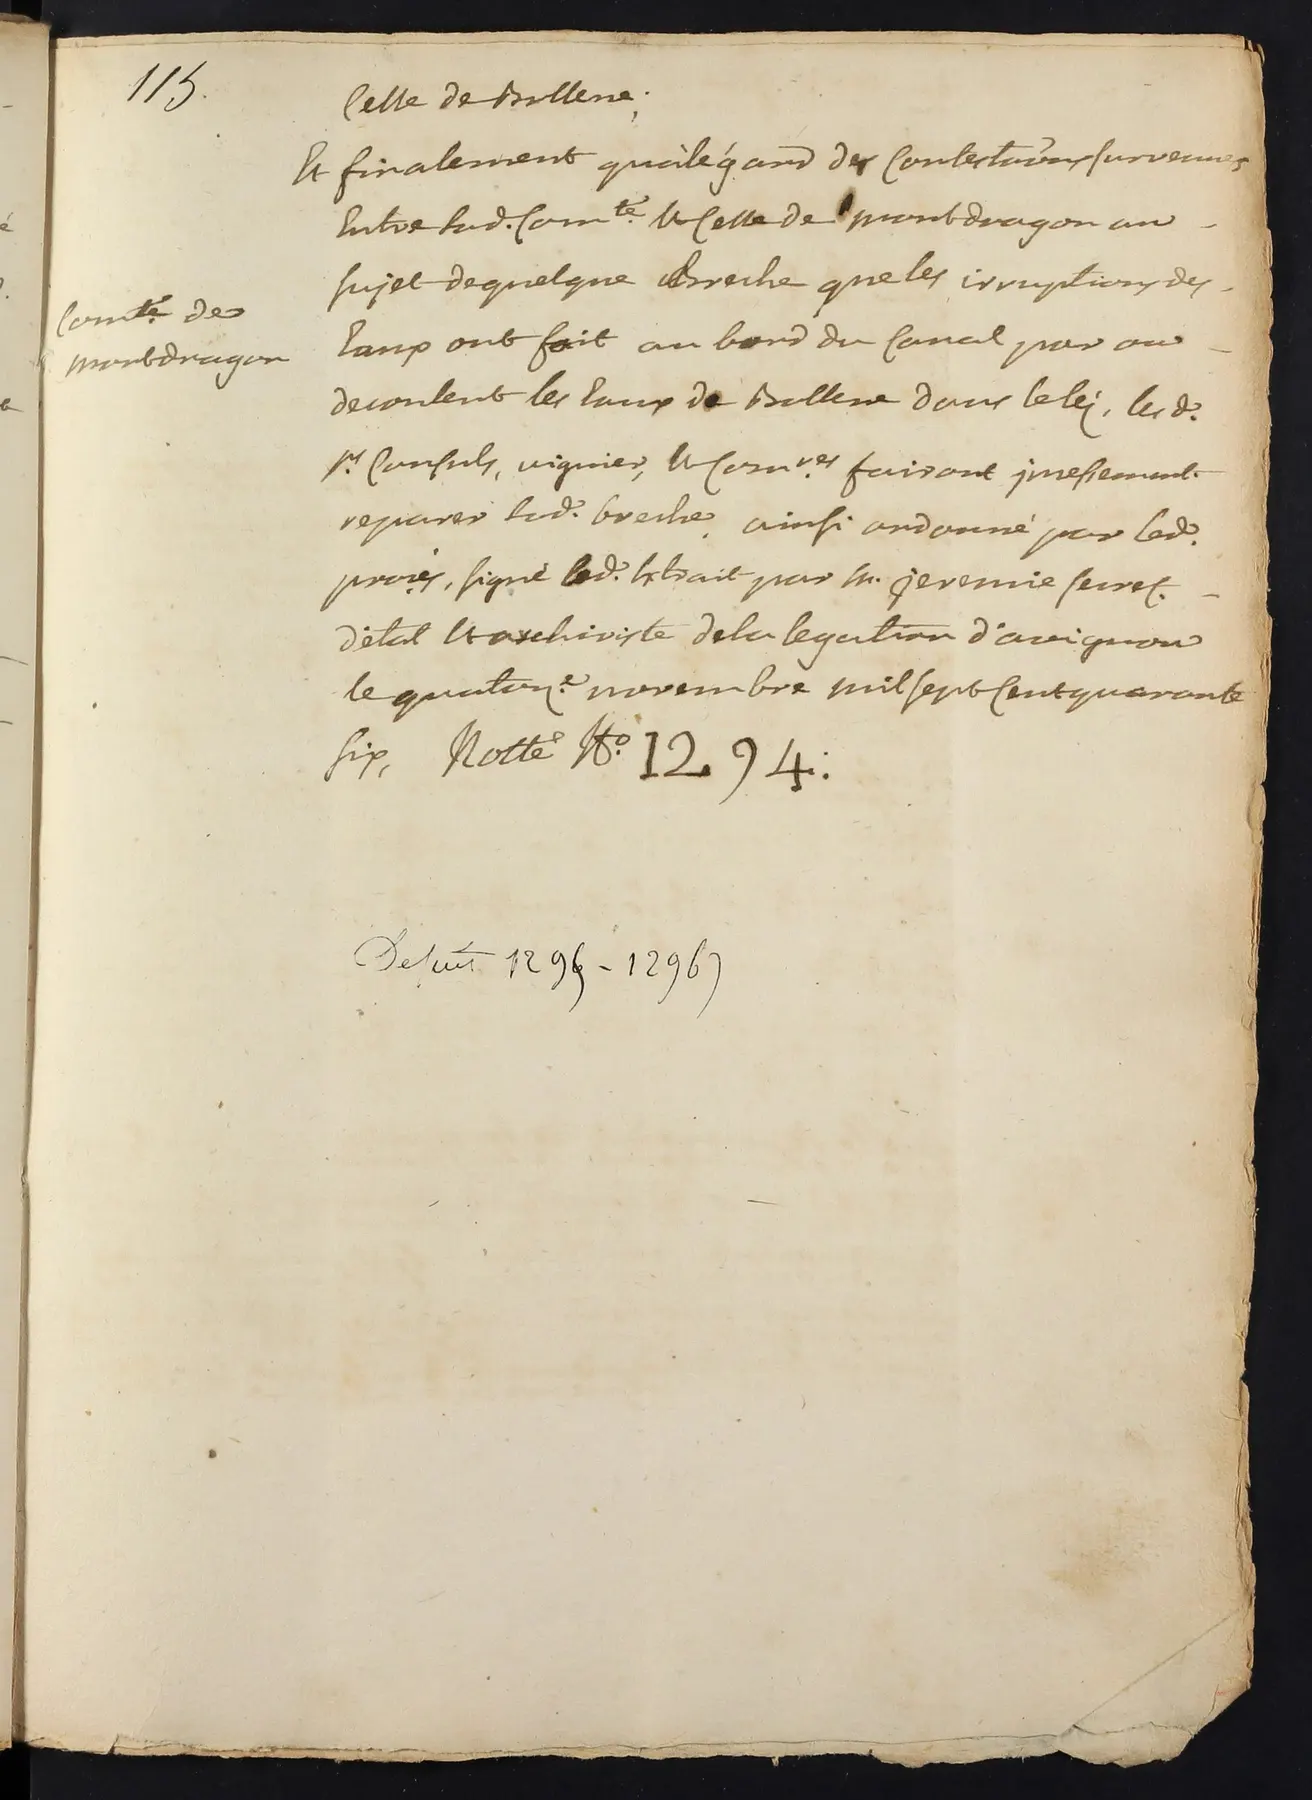 115.
Celle de Bollene;
Et finalement quàlégard des Contestaõns survenues
Entre lad. Com.té Et Celle de montdragon au
sujet dequelque Breche queles irruptions des
Eaux ont fait au bord du Canal par ou
decoulent les Eaux de Bollene dans lelèz, les d.
srs Consuls, viguier, Et Com.res fairont incessement
reparer lad.e breche, ainsi ordonné par led.
procès, signé led. Extrait par Mr. jeremie secret.
d'état Et archiviste dela legation d'avignon
le quatorz.e novembre milsept Cent quarante
six, Notté No. 1294:
Comté. de
montdragon
Deficit 1295 - 1296